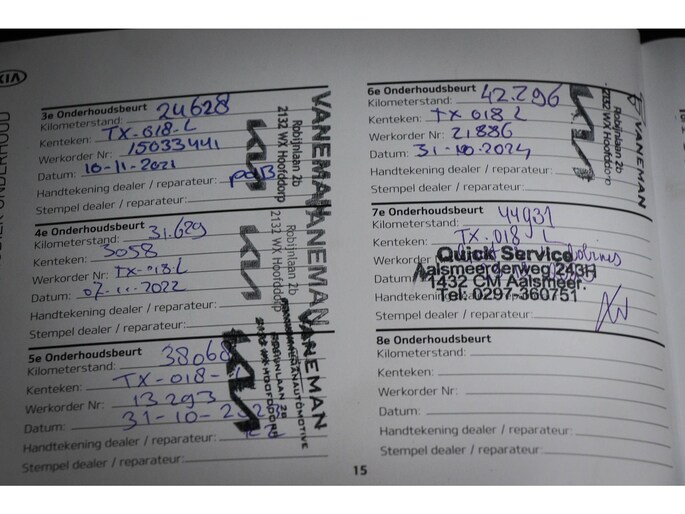 KIA
3e Onderhoudsbeurt
Kilometerstand: 24628
Kenteken: TX-018-L
Werkorder Nr: 15033441
Datum: 10-11-2021
Handtekening dealer / reparateur:
Stempel dealer / reparateur:
VANEMAN
Robijnlaan 2b
2132 WX Hoofddorp
KIA
4e Onderhoudsbeurt
Kilometerstand: 31.629
Kenteken: 3058
Werkorder Nr: TX-018-L
Datum: 07-11-2022
Handtekening dealer / reparateur:
Stempel dealer / reparateur:
VANEMAN
Robijnlaan 2b
2132 WX Hoofddorp
KIA
5e Onderhoudsbeurt
Kilometerstand: 38068
Kenteken: TX-018-
Werkorder Nr: 13293
Datum: 31-10-2023
Handtekening dealer / reparateur:
Stempel dealer / reparateur:
VANEMAN
ROBIJNLAAN 2B
2132 WX HOOFDDORP
KIA
6e Onderhoudsbeurt
Kilometerstand: 42.296
Kenteken: TX 018 L
Werkorder Nr: 21886
Datum: 31-10-2024
Handtekening dealer / reparateur:
Stempel dealer / reparateur:
VANEMAN
Robijnlaan 2b
2132 WX Hoofddorp
KIA
7e Onderhoudsbeurt
Kilometerstand: 44931
Kenteken: TX-018 L
Werkorder
Datum:
Handtekening
Stempel dealer / reparateur:
Quick Service
Aalsmeerderweg 243H
1432 CM Aalsmeer.
Tel: 0297-360751
8e Onderhoudsbeurt
Kilometerstand:
Kenteken:
Werkorder Nr:
Datum:
Handtekening dealer / reparateur:
Stempel dealer / reparateur:
15